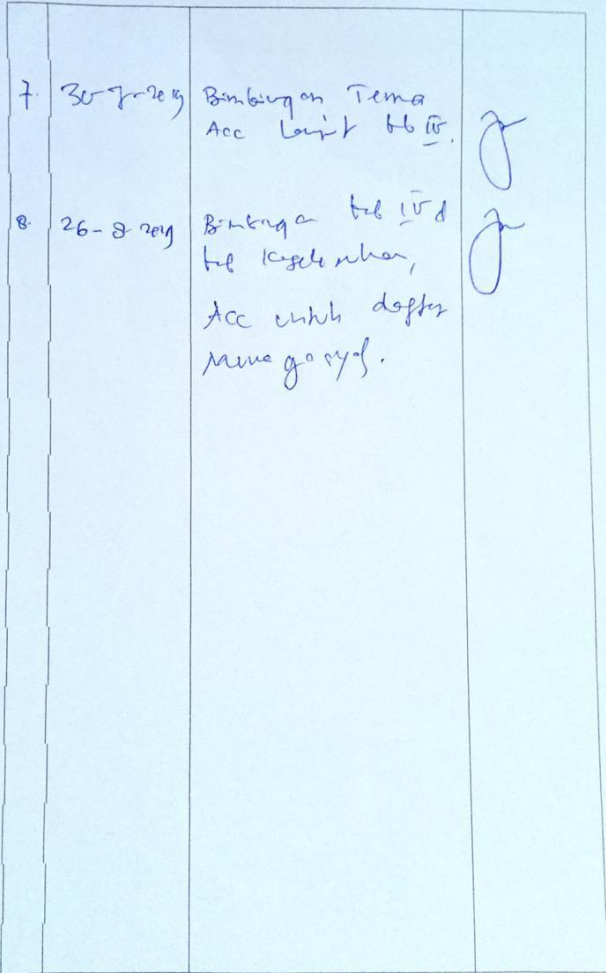 7. 30-7-2019 Bimbingan Tema
Acc Lanjut bab IV.
8. 26-8-2019 Bimbingan bab IV d
bab keseluruhan,
Acc untuk daftar